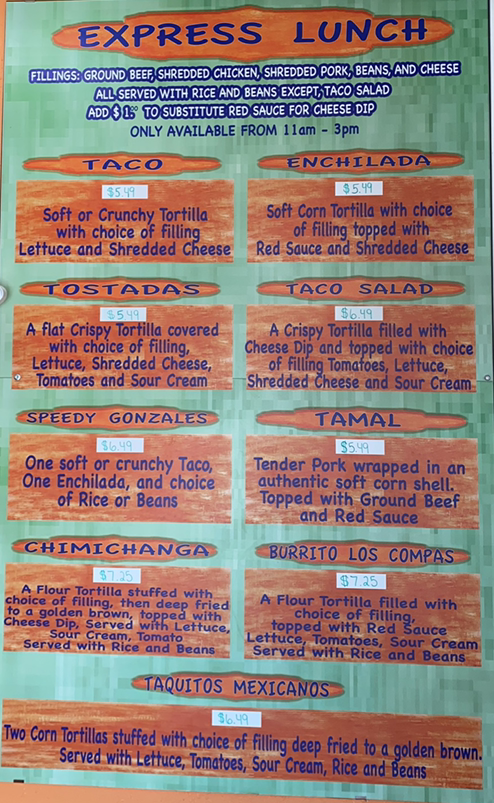 EXPRESS LUNCH
FILLINGS: GROUND BEEF, SHREDDED CHICKEN, SHREDDED PORK, BEANS, AND CHEESE
ALL SERVED WITH RICE AND BEANS EXCEPT, TACO SALAD
ADD $1.00 TO SUBSTITUTE RED SAUCE FOR CHEESE DIP
ONLY AVAILABLE FROM 11am - 3pm
TACO
$5.49
Soft or Crunchy Tortilla
with choice of filling
Lettuce and Shredded Cheese
ENCHILADA
$5.49
Soft Corn Tortilla with choice
of filling topped with
Red Sauce and Shredded Cheese
TOSTADAS
$5.49
A flat Crispy Tortilla covered
with choice of filling,
Lettuce, Shredded Cheese,
Tomatoes and Sour Cream
TACO SALAD
$6.49
A Crispy Tortilla filled with
Cheese Dip and topped with choice
of filling Tomatoes, Lettuce,
Shredded Cheese and Sour Cream
SPEEDY GONZALES
$6.49
One soft or crunchy Taco,
One Enchilada, and choice
of Rice or Beans
TAMAL
$5.49
Tender Pork wrapped in an
authentic soft corn shell.
Topped with Ground Beef
and Red Sauce
CHIMICHANGA
$7.25
A Flour Tortilla stuffed with
choice of filling, then deep fried
to a golden brown, topped with
Cheese Dip, Served with Lettuce,
Sour Cream, Tomato
Served with Rice and Beans
BURRITO LOS COMPAS
$7.25
A Flour Tortilla filled with
choice of filling,
topped with Red Sauce
Lettuce, Tomatoes, Sour Cream
Served with Rice and Beans
TAQUITOS MEXICANOS
$6.49
Two Corn Tortillas stuffed with choice of filling deep fried to a golden brown.
Served with Lettuce, Tomatoes, Sour Cream, Rice and Beans